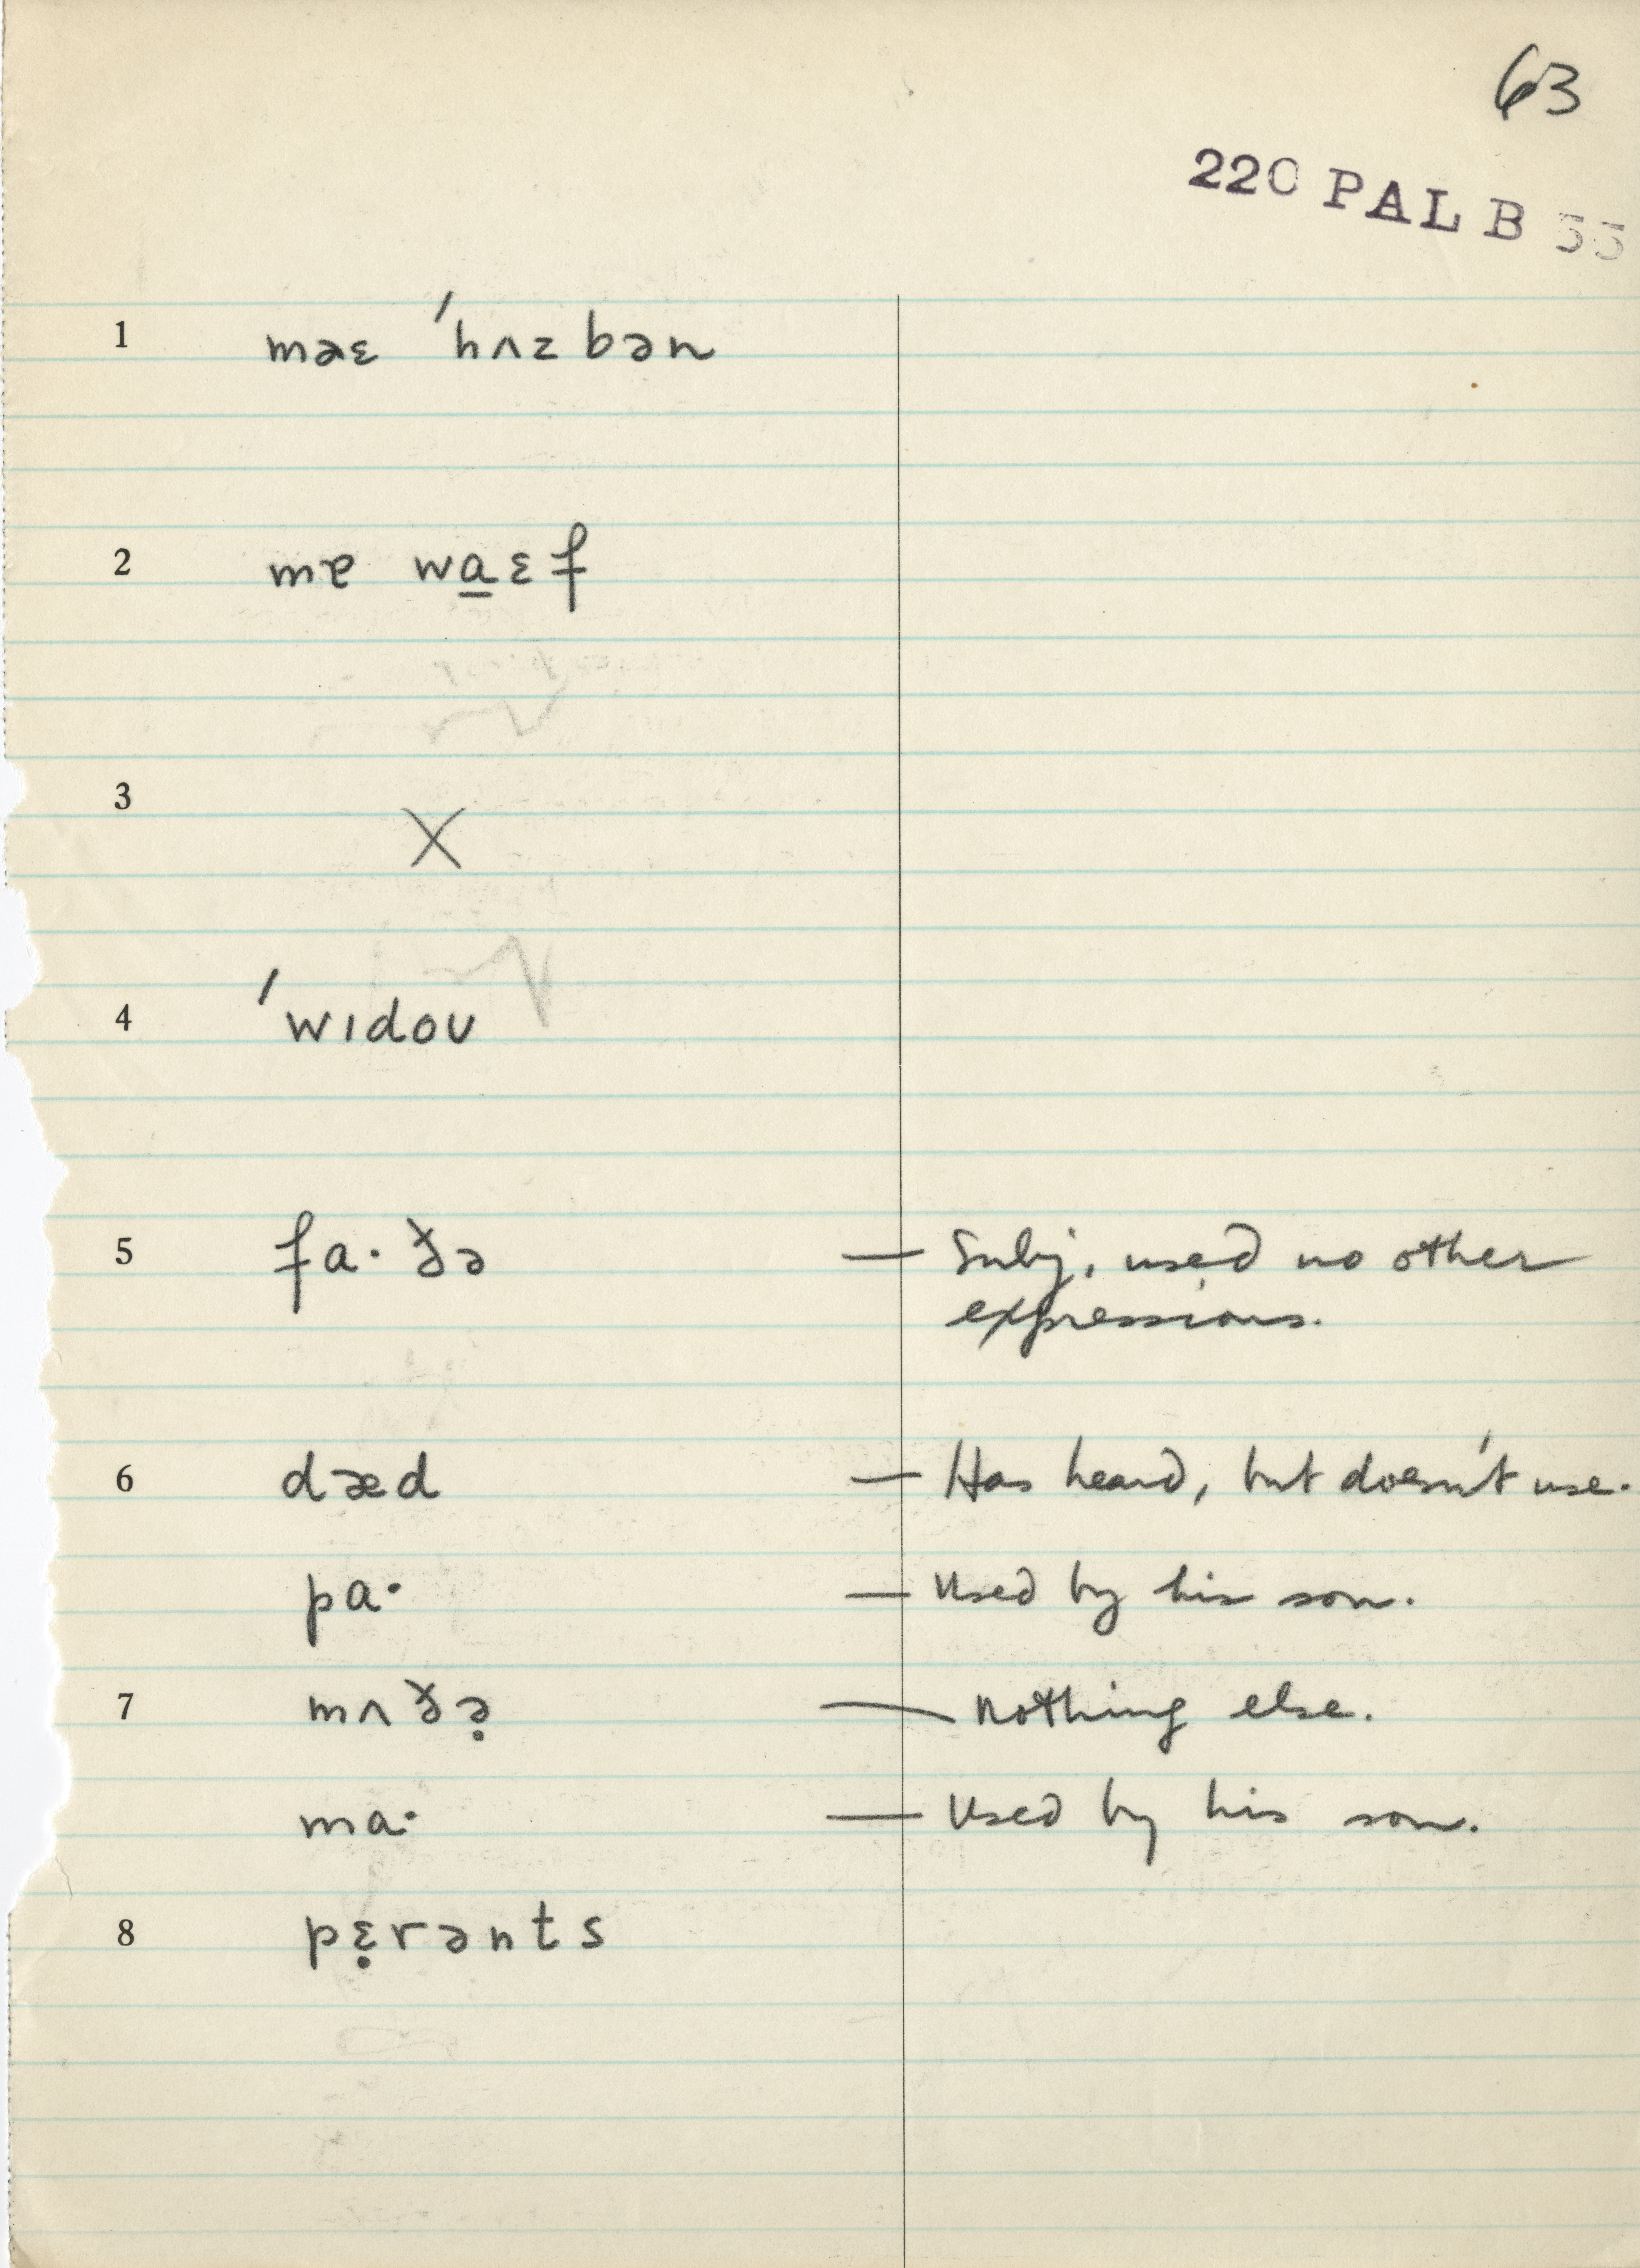 63
220 PAL B 55
1 maɛ ˈhʌzbən
2 mɐ wa̱ɛf
3 X
4 ˈwɪdoʊ
5 fa·ðə — Subj. used no other
expressions.
6 dæd — Has heard, but doesn't use.
pa· — Used by his son.
7 mʌðə̣ — Nothing else.
ma· — Used by his son.
8 pɛ̣rənts